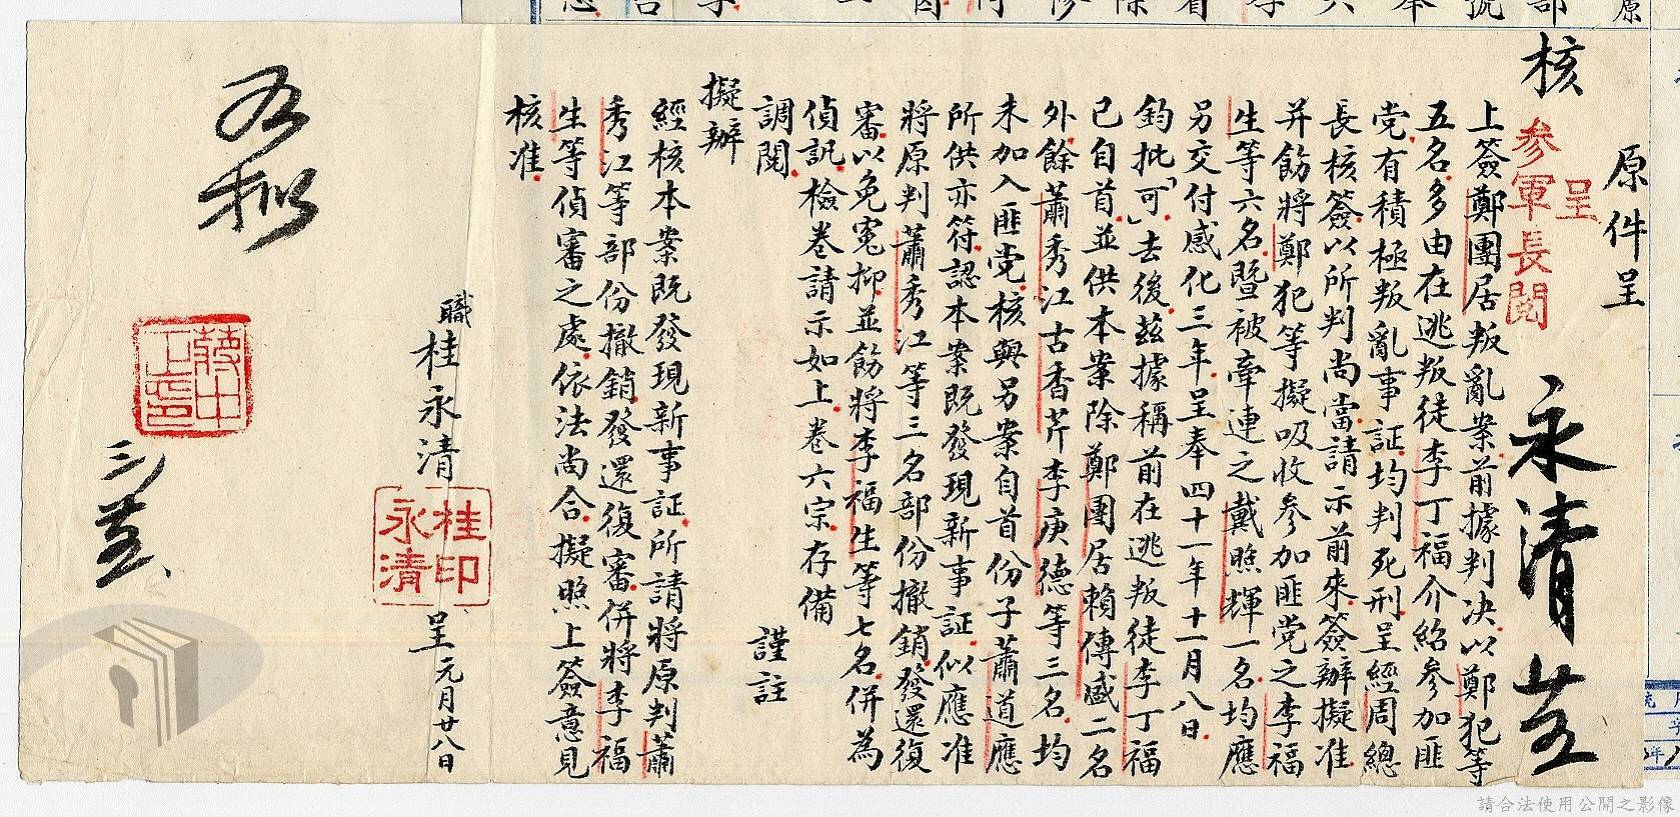 核
原件呈
呈
參軍長閱
永清
上簽鄭團居叛亂案前據判決以鄭犯等
五名多由在逃叛徒李丁福介紹參加匪
党有積極叛亂事証均判死刑呈經周總
長核簽以所判尚當請示前來簽辦擬准
并飭將鄭犯等擬吸收參加匪党之李福
生等六名暨被牽連之戴照輝一名均應
另交付感化三年呈奉四十一年十一月八日
鈞批「可」去後茲據稱前在逃叛徒李丁福
已自首並供本案除鄭團居賴傳盛二名
外餘蕭秀江古香芹李庚德等三名均
未加入匪党核與另案自首份子蕭道應
所供亦符認本案既發現新事証似應准
將原判蕭秀江等三名部份撤銷發還復
審以免冤抑並飭將李福生等七名併為
偵訊檢卷請示如上卷六宗存備
調閱
謹註
擬辦
經核本案既發現新事証所請將原判蕭
秀江等部份撤銷發還復審併將李福
生等偵審之處依法尚合擬照上簽意見
核准
職桂永清
桂永清印
呈元月廿八日
如擬
蔣中正印
請合法使用公開之影像